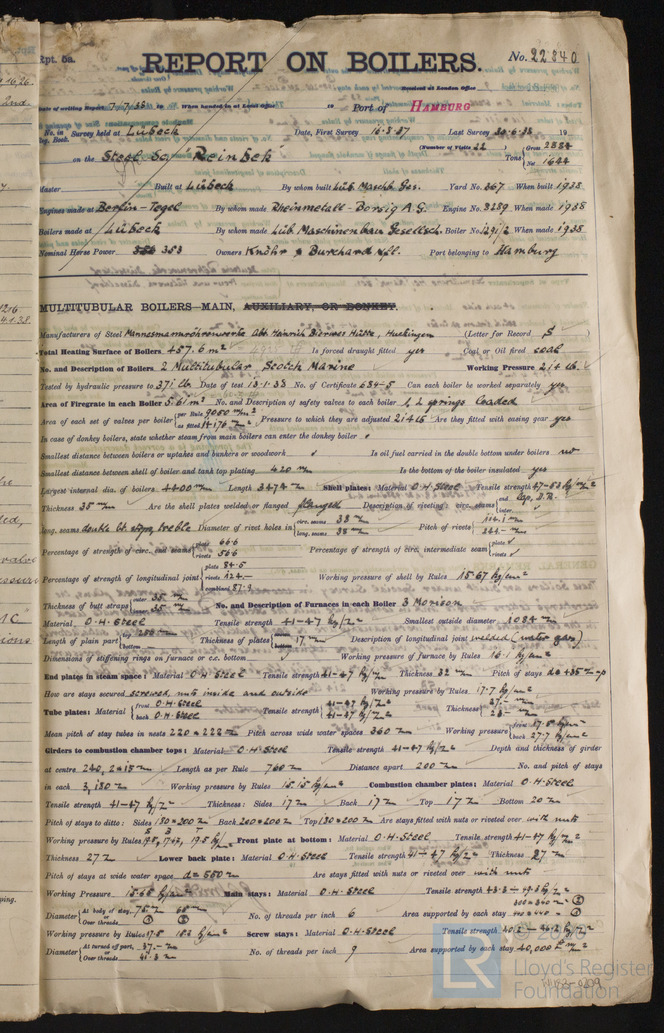 Rpt. 5a.
REPORT ON BOILERS.
No. 22840
Received at London Office
Date of writing Report 7.7.38 When handed in at Local Office 19 Port of HAMBURG
No. in Reg. Book. Survey held at Lübeck Date, First Survey 16.3.37 Last Survey 30.6.38 19
(Number of Visits 22)
on the Steel Sc. "Reinbek" Tons Gross 2884
Net 1644
Master Built at Lübeck By whom built Lüb. Maschb. Ges. Yard No. 367 When built 1938
Engines made at Berlin-Tegel By whom made Rheinmetall-Borsig A.G. Engine No. 3289 When made 1938
Boilers made at Lübeck By whom made Lüb. Maschinenbau Gesellsch. Boiler No. 1291/2 When made 1938
Nominal Horse Power 353 Owners Knöhr & Burchard Nfl. Port belonging to Hamburg
MULTITUBULAR BOILERS—MAIN, AUXILIARY, OR DONKEY.
Manufacturers of Steel Mannesmannröhrenwerke Abt. Heinrich Bierwes Hütte, Huckingen (Letter for Record S)
Total Heating Surface of Boilers 457.6 m² Is forced draught fitted yes Coal or Oil fired coal
No. and Description of Boilers 2 Multitubular Scotch Marine Working Pressure 214 lb.
Tested by hydraulic pressure to 371 lb. Date of test 13.1.38 No. of Certificate 654-5 Can each boiler be worked separately yes
Area of Firegrate in each Boiler 5.61 m² No. and Description of safety valves to each boiler 2 springs loaded
Area of each set of valves per boiler per Rule 9050 mm² as fitted 14176 mm² Pressure to which they are adjusted 214 lb Are they fitted with easing gear yes
In case of donkey boilers, state whether steam from main boilers can enter the donkey boiler
Smallest distance between boilers or uptakes and bunkers or woodwork Is oil fuel carried in the double bottom under boilers no
Smallest distance between shell of boiler and tank top plating 420 mm Is the bottom of the boiler insulated yes
Largest internal dia. of boilers 4400 mm Length 3474 mm Shell plates: Material O.H. Steel Tensile strength 47-53 kg/mm²
Thickness 35 mm Are the shell plates welded or flanged flanged Description of riveting: circ. seams end lap, D.R.
inter.
long. seams double bt. straps, treble Diameter of rivet holes in circ. seams 38 mm
long. seams 38 mm Pitch of rivets 114.1 mm
244 mm
Percentage of strength of circ. end seams plate 66.6
rivets 56.6 Percentage of strength of circ. intermediate seam plate
rivets
Percentage of strength of longitudinal joint plate 84.5
rivets
combined 87.9 Working pressure of shell by Rules 15.67 kg/cm²
Thickness of butt straps outer 35 mm
inner 35 mm No. and Description of Furnaces in each Boiler 3 Morison
Material O.H. Steel Tensile strength 41-47 kg/mm² Smallest outside diameter 1034 mm
Length of plain part top
bottom Thickness of plates crown
bottom 17 mm Description of longitudinal joint welded (water gas)
Dimensions of stiffening rings on furnace or c.c. bottom Working pressure of furnace by Rules 16.1 kg/cm²
End plates in steam space: Material O.H. Steel Tensile strength 41-47 kg/mm² Thickness 32 mm Pitch of stays
How are stays secured screwed, nuts inside and outside Working pressure by Rules 17.7 kg/cm²
Tube plates: Material front O.H. Steel
back O.H. Steel Tensile strength 41-47 kg/mm²
41-47 kg/mm² Thickness
Mean pitch of stay tubes in nests 220 x 222 mm Pitch across wide water spaces 360 mm Working pressure front
back 27.7 kg/cm²
Girders to combustion chamber tops: Material O.H. Steel Tensile strength 41-47 kg/mm² Depth and thickness of girder
at centre 240, 2x18 mm Length as per Rule 760 mm Distance apart 200 mm No. and pitch of stays
in each 3, 180 mm Working pressure by Rules 15.15 kg/cm² Combustion chamber plates: Material O.H. Steel
Tensile strength 41-47 kg/mm² Thickness: Sides 17 mm Back 17 mm Top 17 mm Bottom 20 mm
Pitch of stays to ditto: Sides 180 x 200 mm Back 200 x 200 mm Top 180 x 200 mm Are stays fitted with nuts or riveted over with nuts
Working pressure by Rules Front plate at bottom: Material O.H. Steel Tensile strength 41-47 kg/mm²
Thickness 27 mm Lower back plate: Material O.H. Steel Tensile strength 41-47 kg/mm² Thickness 27 mm
Pitch of stays at wide water space d = 550 mm Are stays fitted with nuts or riveted over with nuts
Working Pressure 15.65 kg/cm² Main stays: Material O.H. Steel Tensile strength
Diameter At body of stay, 76 mm 68 mm
Over threads No. of threads per inch 6 Area supported by each stay
Working pressure by Rules Screw stays: Material O.H. Steel Tensile strength
Diameter At turned off part, 37 mm
Over threads 41.3 mm No. of threads per inch 9 Area supported by each stay 40,000 mm²
© 2020
LR
Lloyd's Register
Foundation
W182-0209